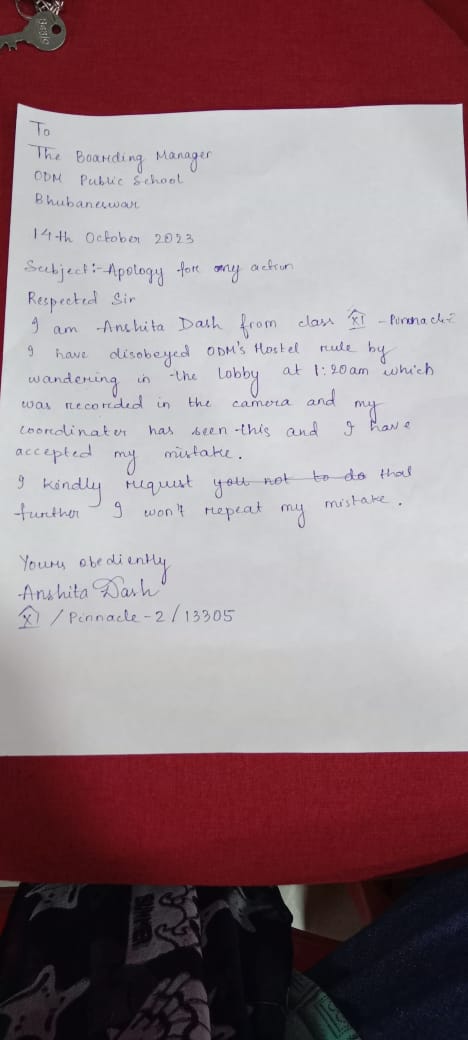 To
The Boarding Manager
ODM Public School
Bhubaneswar
14th October 2023
Subject:- Apology for my action
Respected Sir
I am Anshita Dash from class XI -
I have disobeyed ODM's Hostel rule by
wandering in the lobby at 1:20am which
was recorded in the camera and my
coordinater has seen this and I have
accepted my mistake.
I kindly request you not to do that
further I won't repeat my mistake.
Yours obediently
Anshita Dash
XI / Pinnacle-2/13305